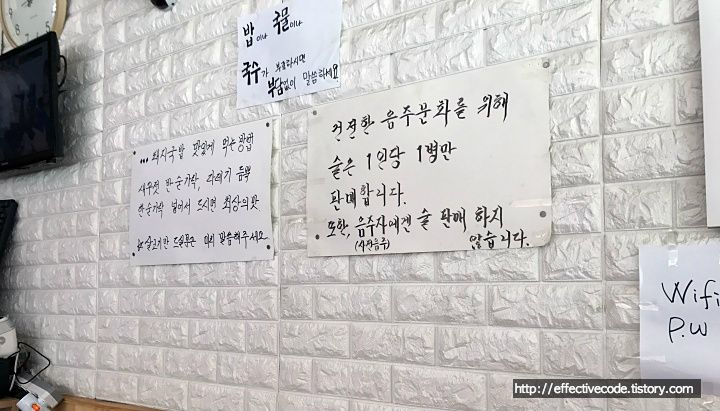 밥이나 국물이나
국수가 부족하시면
부담없이 말씀하세요
... 돼지국밥 맛있게 먹는방법
새우젓 반 숟가락, 다데기 듬뿍
한숟가락 넣어서 드시면 최상의맛
살고기만 드실분은 미리 말씀해주세요
건전한 음주문화를 위해
술은 1인당 1병만
판매합니다.
또한, 음주자에겐 술 판매 하지
(사전음주) 않습니다.
Wifi
P.W
http://effectivecode.tistory.com/